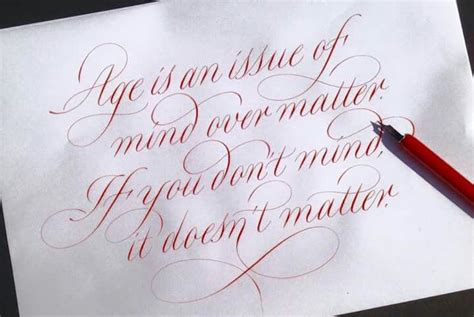 Age is an issue of
mind over matter.
If you don't mind,
it doesn't matter.